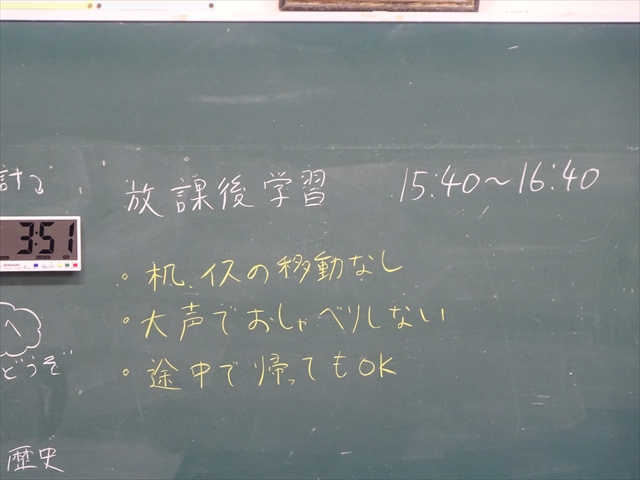 計る
放課後学習 15:40〜16:40
3:51
・机、イスの移動なし
へ
・大声でおしゃべりしない
どうぞ
・途中で帰ってもOK
歴史